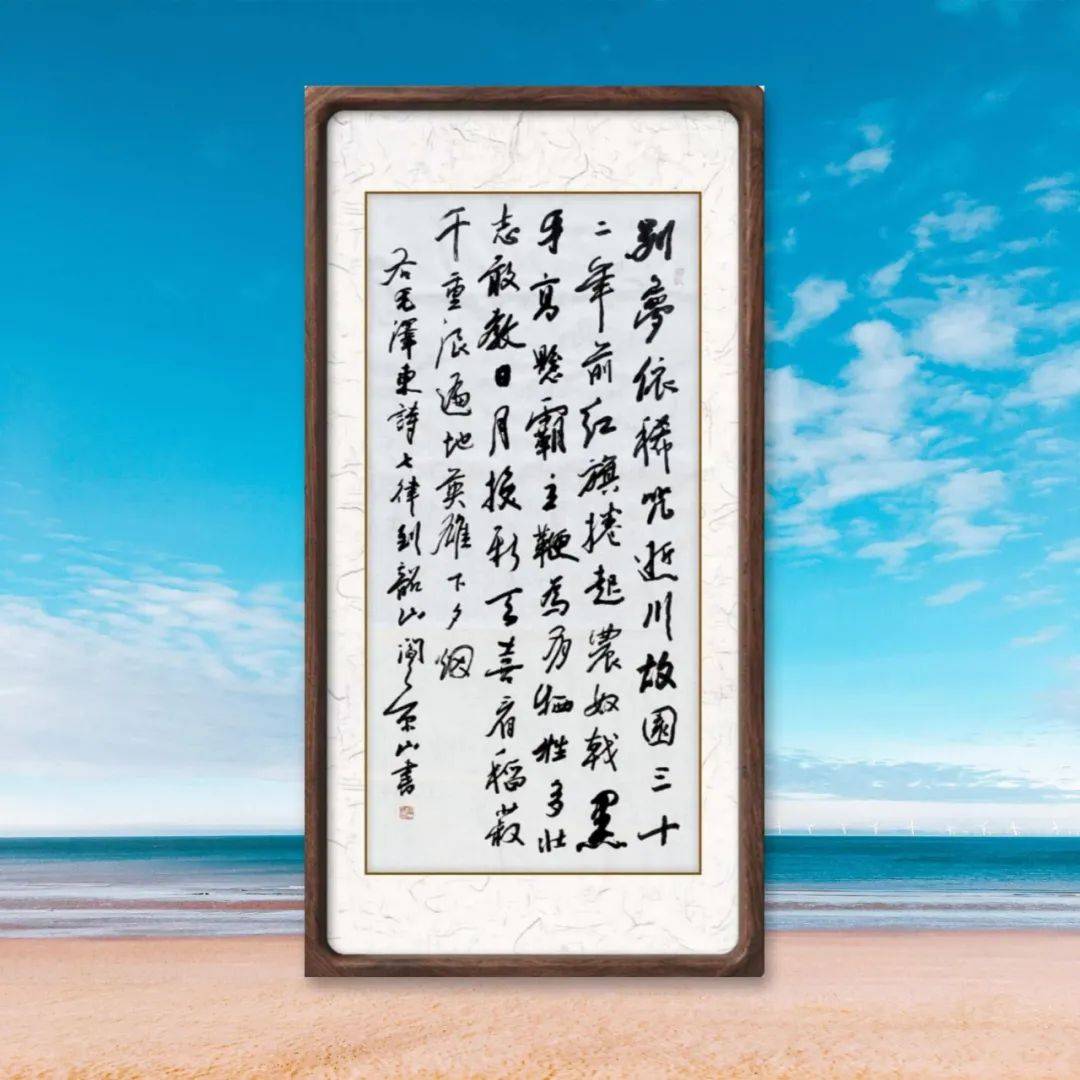 别夢依稀咒逝川故園三十
二年前红旗捲起農奴戟黑
手高懸霸主鞭為有牺牲多壮
志敢教日月换新天喜看稻菽
千重浪遍地英雄下夕烟
右毛澤東詩七律到韶山 山書